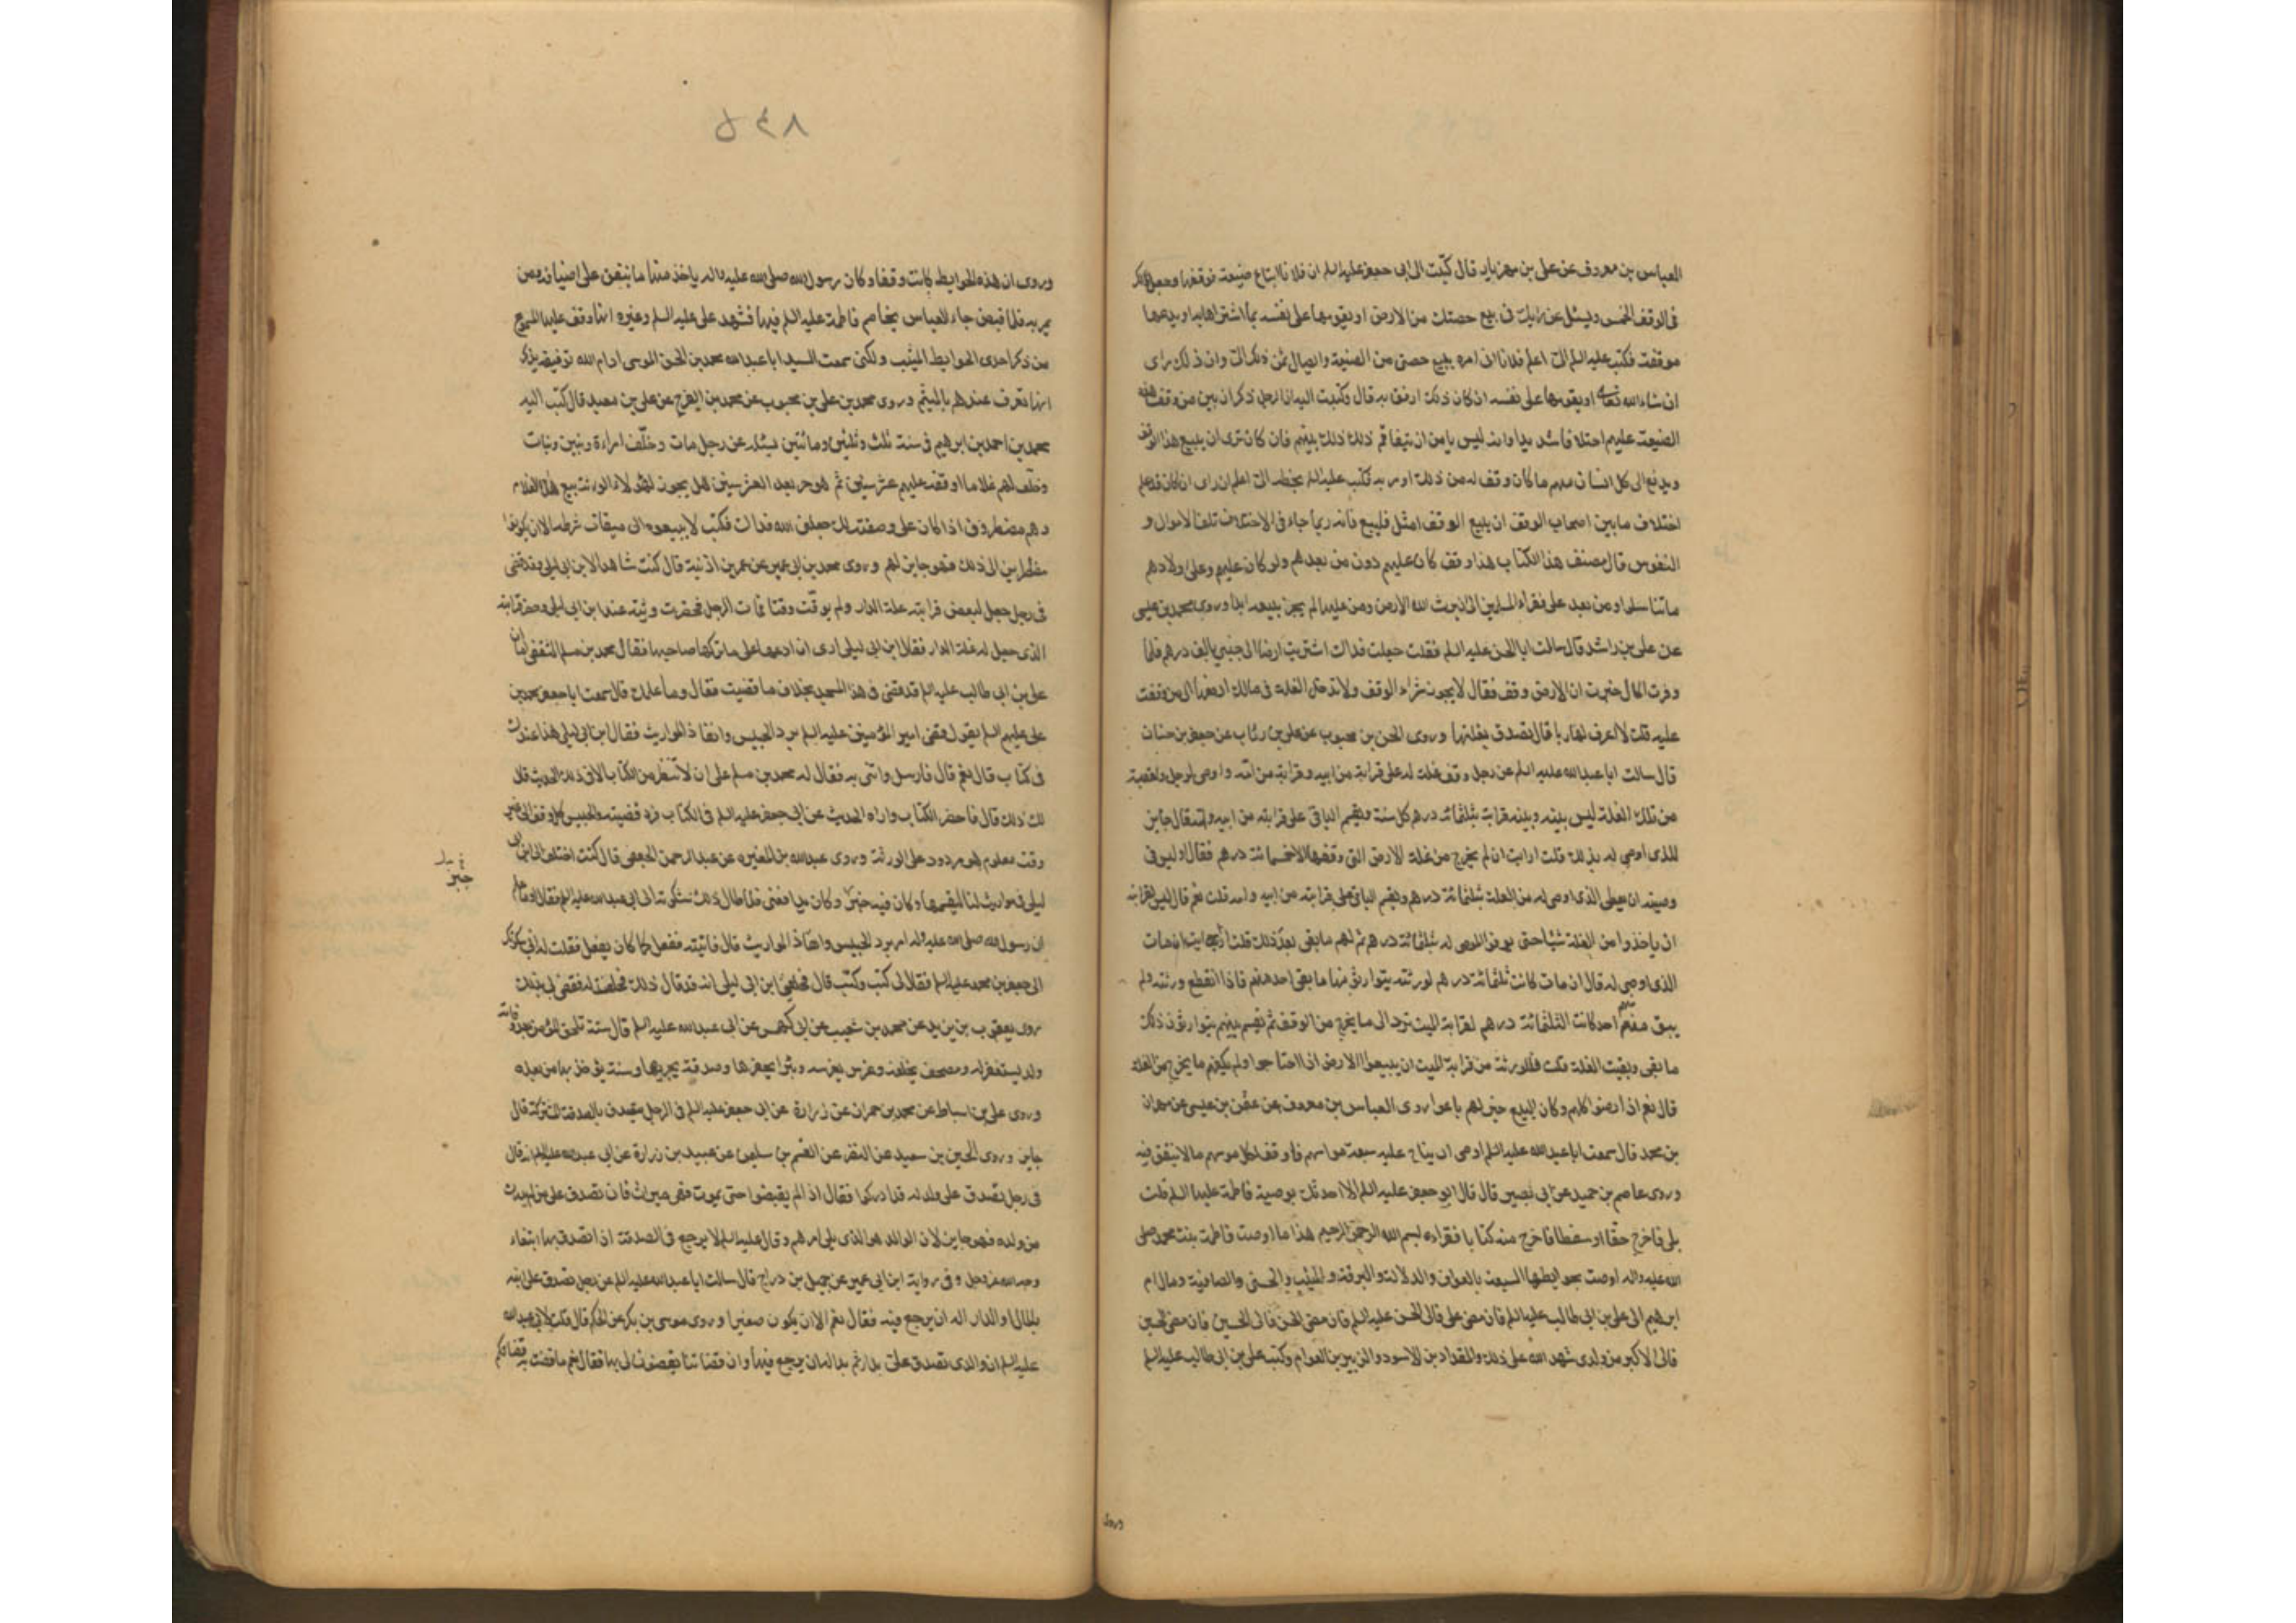 العباس بن معروف عن علي بن مهزيار قال كتبت الى ابى جعفر عليه السلم ان فلانا ابتاع ضيعة فوقفها وجعل لك
فى الوقف الخمس ويسئل عن رايك فى بيع حصتك من الارض او يقومها على نفسه بما اشتراها به او يدعها
موقفة فكتب عليه السلم الى اعلم فلانا انى امره ببيع حصتى من الضيعة وايصال ثمن ذلك الى وان ذلك راى
ان شاء الله تعالى او يقومها على نفسه ان كان ذلك ارفق به قال وكتبت اليه ان الرجل ذكر ان بين من وقف هذه
الضيعة عليهم اختلافا شديدا وانه ليس يامن ان يتفاقم ذلك بينهم فان كان ترى ان يبيع هذا الوقف
ويدفع الى كل انسان منهم ما كان وقف له من ذلك امرته فكتب عليه السلم بخطه الى اعلم ان راى ان كان قد علم
اختلاف ما بين اصحاب الوقف ان بيع الوقف امثل فليبع فانه ربما جاء فى الاختلاف تلف الاموال و
النفوس قال مصنف هذا الكتاب هذا وقف كان عليهم دون من بعدهم ولو كان عليهم وعلى اولادهم
ما تناسلوا ومن بعد على فقراء المسلمين الى ان يرث الله الارض ومن عليها لم يجز بيعه ابدا وروى محمد بن عيسى
عن على بن راشد قال سالت ابا الحسن عليه السلم فقلت جعلت فداك اشتريت ارضا الى جنبى بالف درهم فلما
وفرت المال خبرت ان الارض وقف فقال لا يجوز شراء الوقف ولا تدخل الغلة فى مالك ادفعها الى من وقفت
عليه قلت لا اعرف لها ربا قال تصدق بغلتها وروى الحسن بن محبوب عن على بن رئاب عن جعفر بن حنان
قال سالت ابا عبدالله عليه السلم عن رجل وقف غلة له على قرابة من ابيه وقرابة من امه واوصى لرجل ولعقبه
من تلك الغلة ليس بينه وبينه قرابة بثلثمائة درهم كل سنة ويقسم الباقى على قرابته من ابيه وامه قال جايز
للذى اوصى له بذلك قلت ارايت ان لم يخرج من غلة الارض التى وقفها الا خمسمائة درهم فقال اوليس فى
وصيته ان يعطى الذى اوصى له من الغلة بثلثمائة درهم ويقسم الباقى على قرابته من ابيه وامه قلت نعم قال ليس لقرابته
ان ياخذوا من الغلة شيئا حتى يوفى الموصى له بثلثمائة درهم ثم لهم ما بقى بعد ذلك قلت ارايت ان مات
الذى اوصى له قال ان مات كانت ثلثمائة درهم لورثته يتوارثونها ما بقى احدهم فاذا انقطع ورثته ولم
يبق منهم احد كانت الثلثمائة درهم لقرابة الميت ترد الى ما يخرج من الوقف ثم يقسم بينهم يتوارثون ذلك
ما بقى وبقيت الغلة قلت فللورثة من قرابة الميت ان يبيعوا الارض اذا احتاجوا ولم يكفهم ما يخرج من الغلة
قال نعم اذا رضوا كلهم وكان البيع خير لهم باعوا روى العباس بن معروف عن عثمن بن عيسى عن مهران
بن محمد قال سمعت ابا عبدالله عليه السلم اوصى ان يناح عليه سبعة مواسم فاوقف لكل موسم مالا ينفق فيه
وروى عاصم بن حميد عن ابى بصير قال قال ابو جعفر عليه السلم الا احدثك بوصية فاطمة عليها السلم قلت
بلى فاخرج حقا او سفطا فاخرج منه كتابا فقراءه بسم الله الرحمن الرحيم هذا ما اوصت فاطمة بنت محمد صلى
الله عليه واله اوصت بحوايطها السبعة بالعواف والدلال والبرقة والميثب والحسنى والصافية ومال ام
ابرهيم الى على بن ابى طالب عليه السلم فان مضى على فالى الحسن عليه السلم فان مضى الحسن فالى الحسين فان مضى الحسين
فالى الاكبر من ولدى شهد الله على ذلك والمقداد بن الاسود والزبير بن العوام وكتب على بن ابى طالب عليه السلم
وروى
٥٤٨
وروى ان هذه الحوايط كانت وقفا وكان رسول الله صلى الله عليه واله ياخذ منها ما ينفق على اضيافه ومن
يمر به فلما قبض جاء العباس يخاصم فاطمة عليها السلم فيها فشهد على عليه السلم وغيره انها وقف عليها المسموع
من ذكر احدى الحوايط الميثب ولكنى سمعت السيد ابا عبدالله محمد بن الحسن الموسى ادام الله توفيقه يذكر
انها تعرف عندهم بالميثم وروى محمد بن على بن محبوب عن محمد بن الفرج عن على بن معبد قال كتب اليه
محمد بن احمد بن ابرهيم فى سنة ثلث وثلثين ومائتين يسئله عن رجل مات وخلف امراءة وبنين وبنات
وخلف لهم غلاما اوقفه عليهم عشر سنين ثم هو حر بعد العشر سنين هل يجوز لهؤلاء الورثة بيع هذا الغلام
وهم مضطرون اذا كان على وصفته لك جعلنى الله فداك فكتب لا يبيعوه الى ميقات شرطه الا ان يكونوا
مضطرين الى ذلك فهو جايز لهم وروى محمد بن ابى عمير عن عمر بن اذنية قال كنت شاهدا لابن ابى ليلى فقضى
فى رجل جعل لبعض قرابته غلة الدار ولم يوقت وقتا فمات الرجل فحضرت ورثته عند ابن ابى ليلى وحضر قرابته
الذى جعل له غلة الدار فقال ابن ابى ليلى ارى ان ادعها على ما تركها صاحبها فقال محمد بن مسلم الثقفى اما ان
على بن ابى طالب عليه السلم قد قضى فى هذا المسجد بخلاف ما قضيت فقال وما علمك قال سمعت ابا جعفر محمد بن
على عليهم السلم يقول قضى امير المؤمنين عليه السلم برد الحبيس وانفاذ المواريث فقال ابن ابى ليلى هذا عندك
فى كتاب قال نعم قال فارسل وائتنى به فقال له محمد بن مسلم على ان لا تنظر من الكتاب الا فى ذلك الحديث قال
لك ذلك قال فاحضر الكتاب واراه الحديث عن ابى جعفر عليه السلم فى الكتاب فرد قضيته والحبيس كل وقف الى غير
وقت معلوم هو مردود على الورثة وروى عبدالله بن المغيرة عن عبدالرحمن الجعفى قال كنت اختلف الى ابن ابى
ليلى فى مواريث لنا ليقسمها وكان فيه حبيس وكان يدافعنى فلما طال ذلك شكوته الى ابى عبدالله عليه السلم فقال اوما علم
ان رسول الله صلى الله عليه واله امر برد الحبيس وانفاذ المواريث قال فاتيته ففعل كما كان يفعل فقلت له انى شكوتك
الى جعفر بن محمد عليه السلم فقال لى كيت وكيت قال فحلفنى ابن ابى ليلى انه قد قال ذلك فحلفت له فقضى لى بذلك
روى يعقوب بن يزيد عن محمد بن شعيب عن ابى كهمس عن ابى عبدالله عليه السلم قال ستة تلحق المؤمن بعد وفاته
ولد يستغفر له ومصحف يخلفه وغرس يغرسه وبئر يحفرها وصدقة يجريها وسنة يؤخذ بها من بعده
وروى على بن اسباط عن محمد بن حمران عن زرارة عن ابى جعفر عليه السلم فى الرجل يتصدق بالصدقة المشتركة قال
جايز وروى الحسين بن سعيد عن النضر عن القسم بن سليمن عن عبيد بن زرارة عن ابى عبدالله عليه السلم انه قال
فى رجل تصدق على ولد له قد ادركوا فقال اذا لم يقبضوا حتى يموت فهى ميراث فان تصدق على من لم يدرك
من ولده فهو جايز لان الوالد هو الذى يلى امرهم وقال عليه السلم لا يرجع فى الصدقة اذا تصدق بها ابتغاء
وجه الله عز وجل وفى رواية ابن ابى عمير عن جميل بن دراج قال سالت ابا عبدالله عليه السلم عن رجل تصدق على ابنه
بالمال او الدار اله ان يرجع فيه فقال نعم الا ان يكون صغيرا وروى موسى بن بكر عن الحكم قال قلت لابى عبدالله
عليه السلم ان والدى تصدق على بدار ثم بدا له ان يرجع فيها وان قضاتنا يقضون لى بها فقال نعم ما قضت به قضاتكم